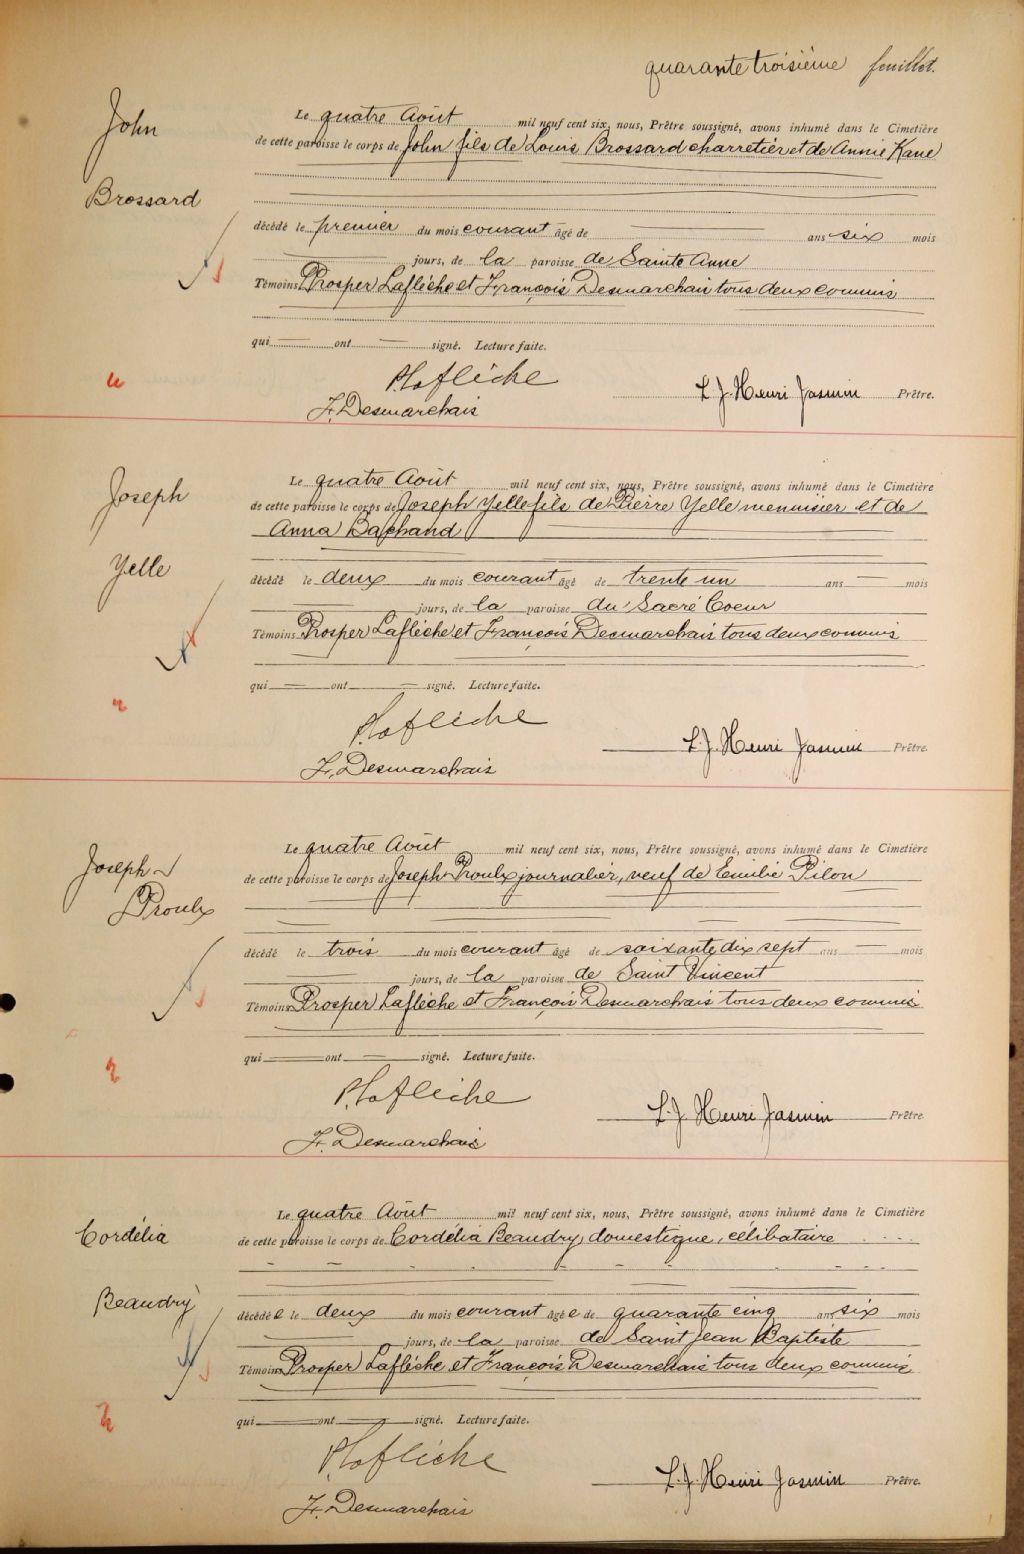 quarante troisième feuillet.
John
Brossard
Le quatre Août mil neuf cent six, nous, Prêtre soussigné, avons inhumé dans le Cimetière
de cette paroisse le corps de John fils de Louis Brossard charretier et de Annie Kane
décédé le premier du mois courant âgé de ans six mois
jours, de la paroisse de Sainte Anne
Témoins Prosper Laflèche et François Desmarchais tous deux commis
qui ont signé. Lecture faite.
P. Laflèche
F. Desmarchais
L. J. Henri Jasmin Prêtre.
Joseph
Yelle
Le quatre Août mil neuf cent six, nous, Prêtre soussigné, avons inhumé dans le Cimetière
de cette paroisse le corps de Joseph Yelle fils de Pierre Yelle menuisier et de
Anna Bachand
décédé le deux du mois courant âgé de trente un ans mois
jours, de la paroisse du Sacré Coeur
Témoins Prosper Laflèche et François Desmarchais tous deux commis
qui ont signé. Lecture faite.
P. Laflèche
F. Desmarchais
L. J. Henri Jasmin Prêtre.
Joseph
Proulx
Le quatre Août mil neuf cent six, nous, Prêtre soussigné, avons inhumé dans le Cimetière
de cette paroisse le corps de Joseph Proulx journalier, veuf de Emilie Pilon
décédé le trois du mois courant âgé de soixante dix sept ans mois
jours, de la paroisse de Saint Vincent
Témoins Prosper Laflèche et François Desmarchais tous deux commis
qui ont signé. Lecture faite.
P. Laflèche
F. Desmarchais
L. J. Henri Jasmin Prêtre.
Cordélia
Beaudry
Le quatre Août mil neuf cent six, nous, Prêtre soussigné, avons inhumé dans le Cimetière
de cette paroisse le corps de Cordélia Beaudry, domestique, célibataire
décédée le deux du mois courant âgée de quarante cinq ans six mois
jours, de la paroisse de Saint Jean Baptiste
Témoins Prosper Laflèche et François Desmarchais tous deux commis
qui ont signé. Lecture faite.
P. Laflèche
F. Desmarchais
L. J. Henri Jasmin Prêtre.